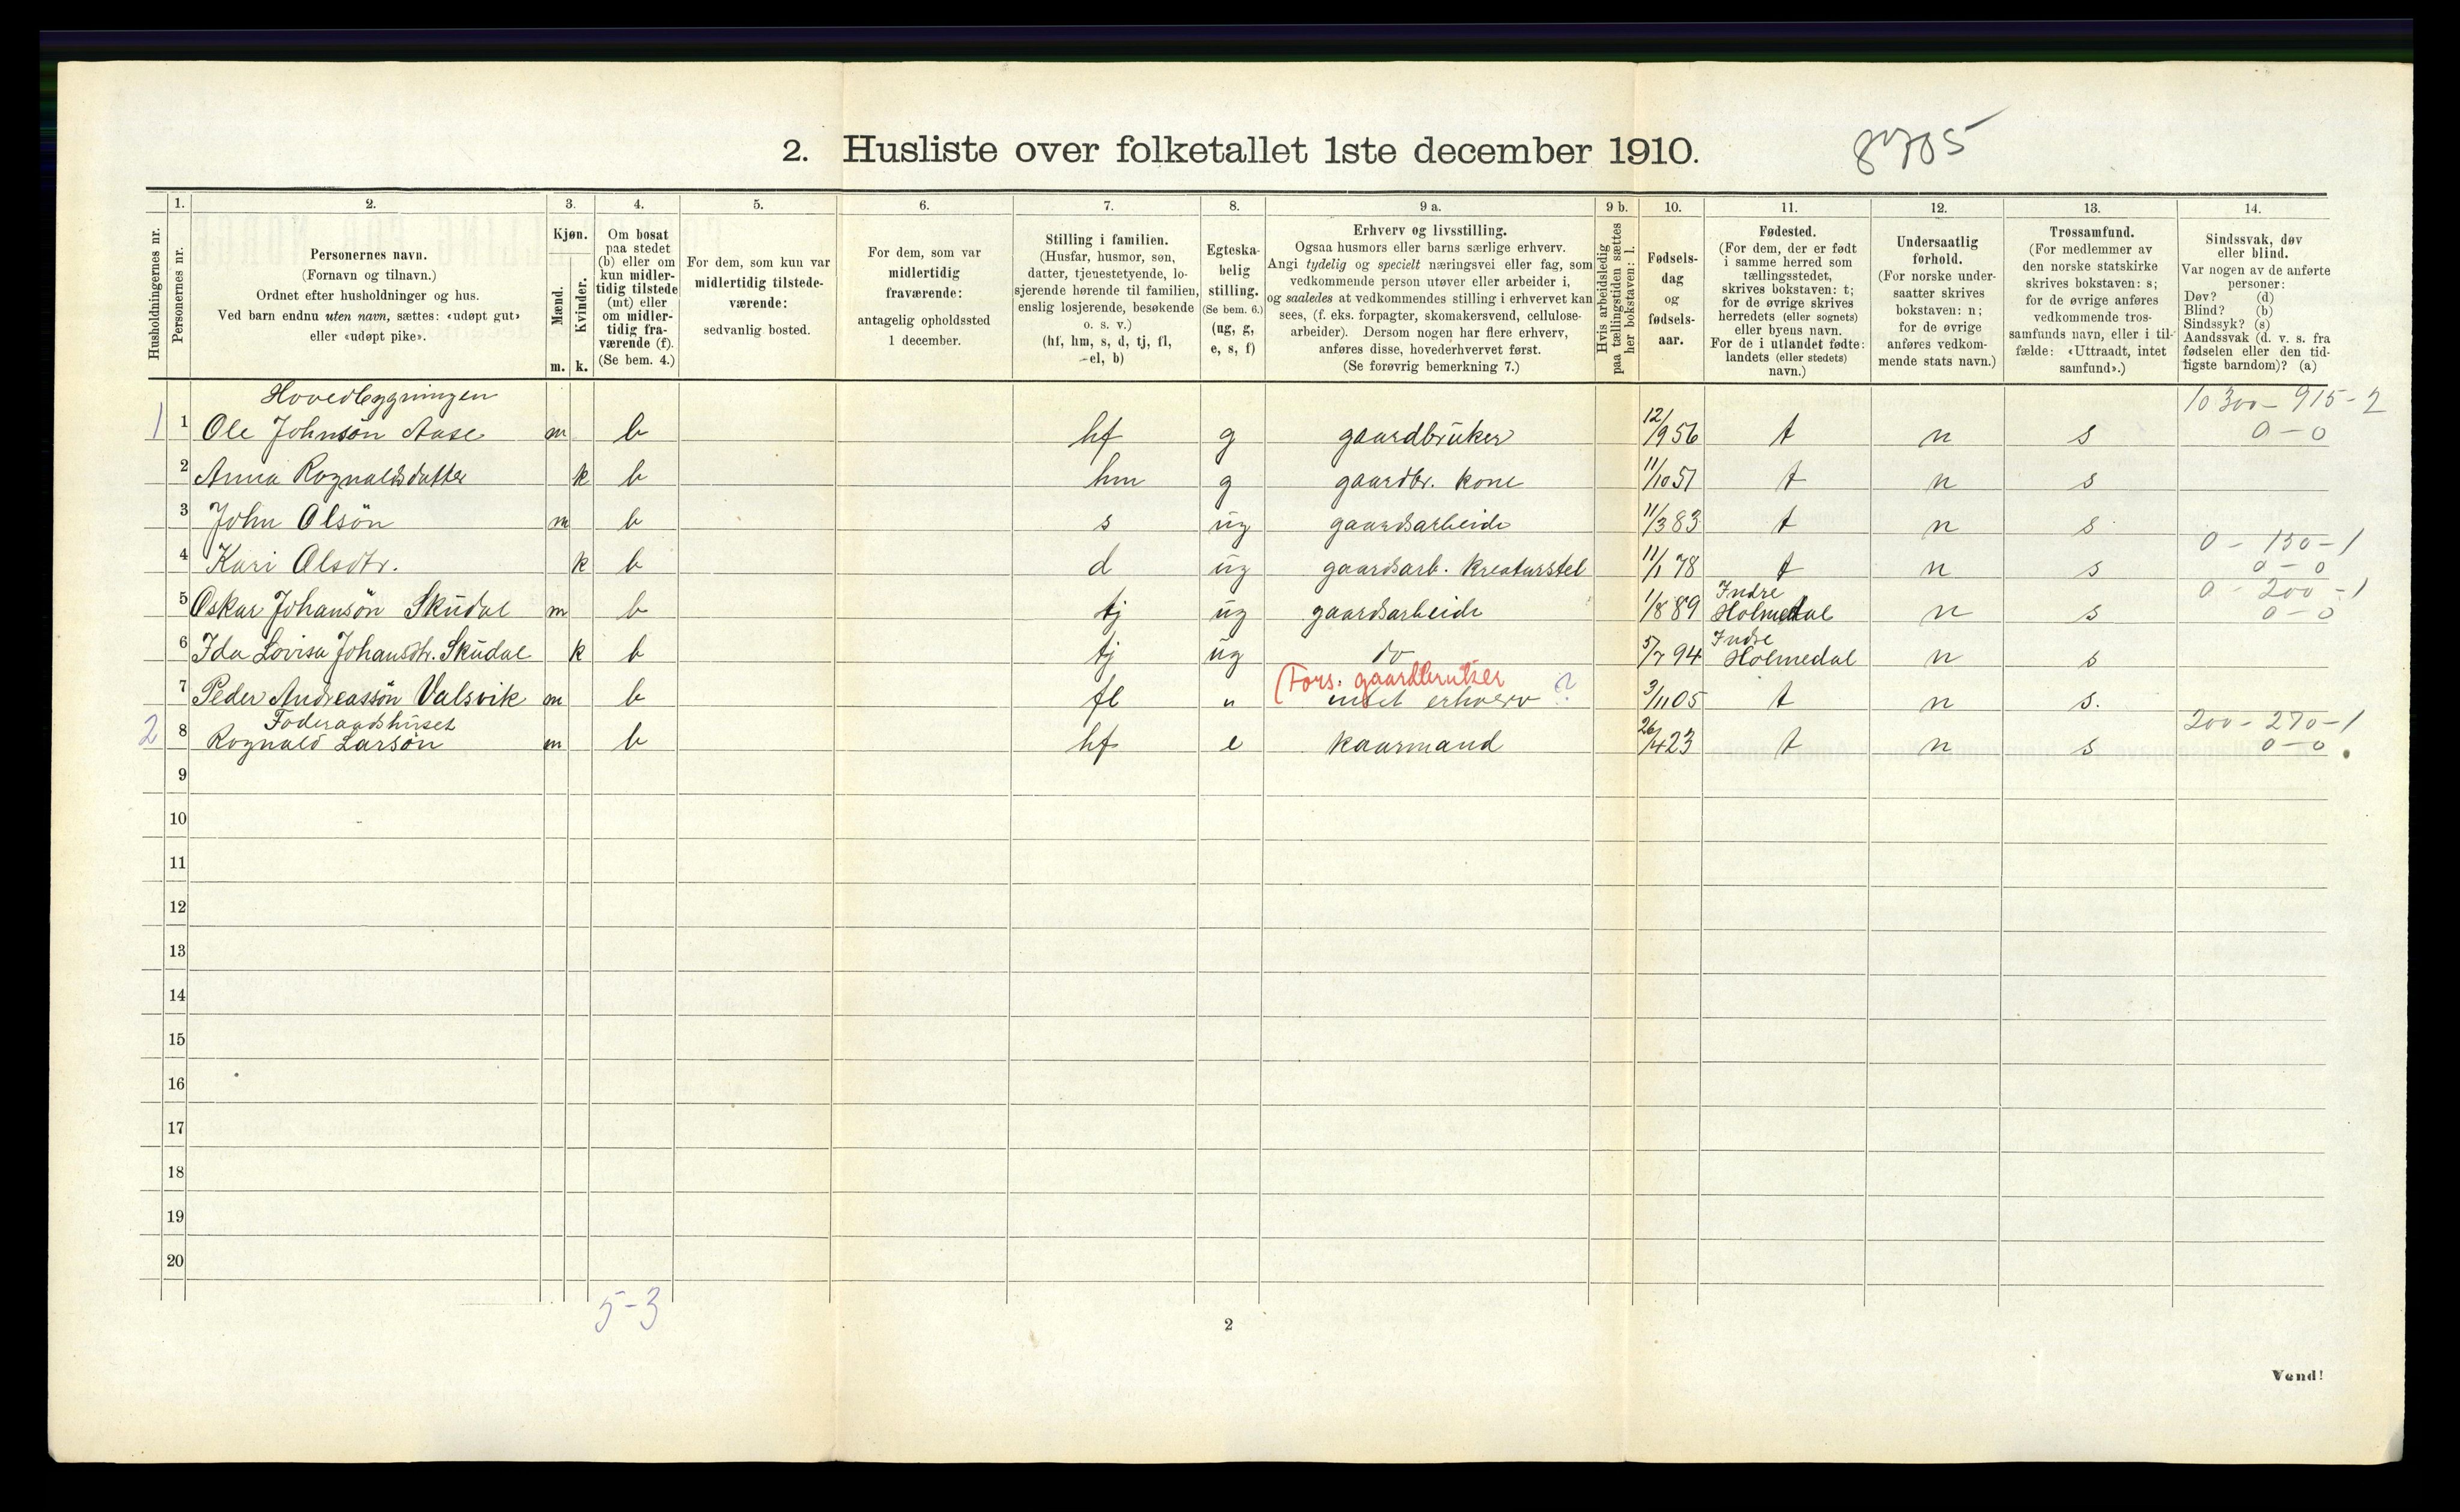 2. Husliste over folketallet 1ste december 1910.
8705
1. 2. 3. 4. 5. 6. 7. 8. 9 a. 9 b. 10. 11. 12. 13. 14.
Husholdningernes nr.
Personernes nr.
Personernes navn.
(Fornavn og tilnavn.)
Ordnet efter husholdninger og hus.
Ved barn endnu uten navn, sættes: «udøpt gut»
eller «udøpt pike».
Kjøn.
Mænd.
Kvinder.
m. k.
Om bosat
paa stedet
(b) eller om
kun midler-
tidig tilstede
(mt) eller
om midler-
tidig fra-
værende (f).
(Se bem. 4.)
For dem, som kun var
midlertidig tilstede-
værende:
sedvanlig bosted.
For dem, som var
midlertidig
fraværende:
antagelig opholdssted
1 december.
Stilling i familien.
(Husfar, husmor, søn,
datter, tjenestetyende, lo-
sjerende hørende til familien,
enslig losjerende, besøkende
o. s. v.)
(hf, hm, s, d, tj, fl,
el, b)
Egteska-
belig
stilling.
(Se bem. 6.)
(ug, g,
e, s, f)
Erhverv og livsstilling.
Ogsaa husmors eller barns særlige erhverv.
Angi tydelig og specielt næringsvei eller fag, som
vedkommende person utøver eller arbeider i,
og saaledes at vedkommendes stilling i erhvervet kan
sees, (f. eks. forpagter, skomakersvend, cellulose-
arbeider). Dersom nogen har flere erhverv,
anføres disse, hovederhvervet først.
(Se forøvrig bemerkning 7.)
Hvis arbeidsledig
paa tællingstiden sættes
her bokstaven: l.
Fødsels-
dag
og
fødsels-
aar.
Fødested.
(For dem, der er født
i samme herred som
tællingsstedet,
skrives bokstaven: t;
for de øvrige skrives
herredets (eller sognets)
eller byens navn.
For de i utlandet fødte:
landets (eller stedets)
navn.)
Undersaatlig
forhold.
(For norske under-
saatter skrives
bokstaven: n;
for de øvrige
anføres vedkom-
mende stats navn.)
Trossamfund.
(For medlemmer av
den norske statskirke
skrives bokstaven: s;
for de øvrige anføres
vedkommende tros-
samfunds navn, eller i til-
fælde: «Uttraadt, intet
samfund».)
Sindssvak, døv
eller blind.
Var nogen av de anførte
personer:
Døv? (d)
Blind? (b)
Sindssyk? (s)
Aandssvak (d. v. s. fra
fødselen eller den tid-
ligste barndom)? (a)
Hovedbygningen 10300-915-2
1 1 Ole Johnsön Aase m b hf g gaardbruker 12/9 56 t n s 0-0
2 Anna Rognaldsdatter k b hm g gaardbr. kone 11/10 51 t n s
3 John Olsön m b s ug gaardsarbeide 11/3 83 t n s
0 - 150-1
4 Kari Olsdtr. k b d ug gaardsarb. kreaturstel 11/1 78 t n s 0-0
Indre 0 - 200-1
5 Oskar Johansön Skudal m b tj ug gaardsarbeide 1/8 89 Holmedal n s 0-0
Indre
6 Ida Lovisa Johansdtr. Skudal k b tj ug do 5/7 94 Holmedal n s
(Fors: gaardbruker
7 Peder Andreassön Valsvik m b fl " intet erhverv ? 3/11 05 t n s.
Föderaadshuset 200-270-1
2 8 Rognald Larsön m b hf e kaarmand 26/4 23 t n s 0-0
9
10
11
12
13
14
15
16
17
18
19
20
5-3
2
Vend!